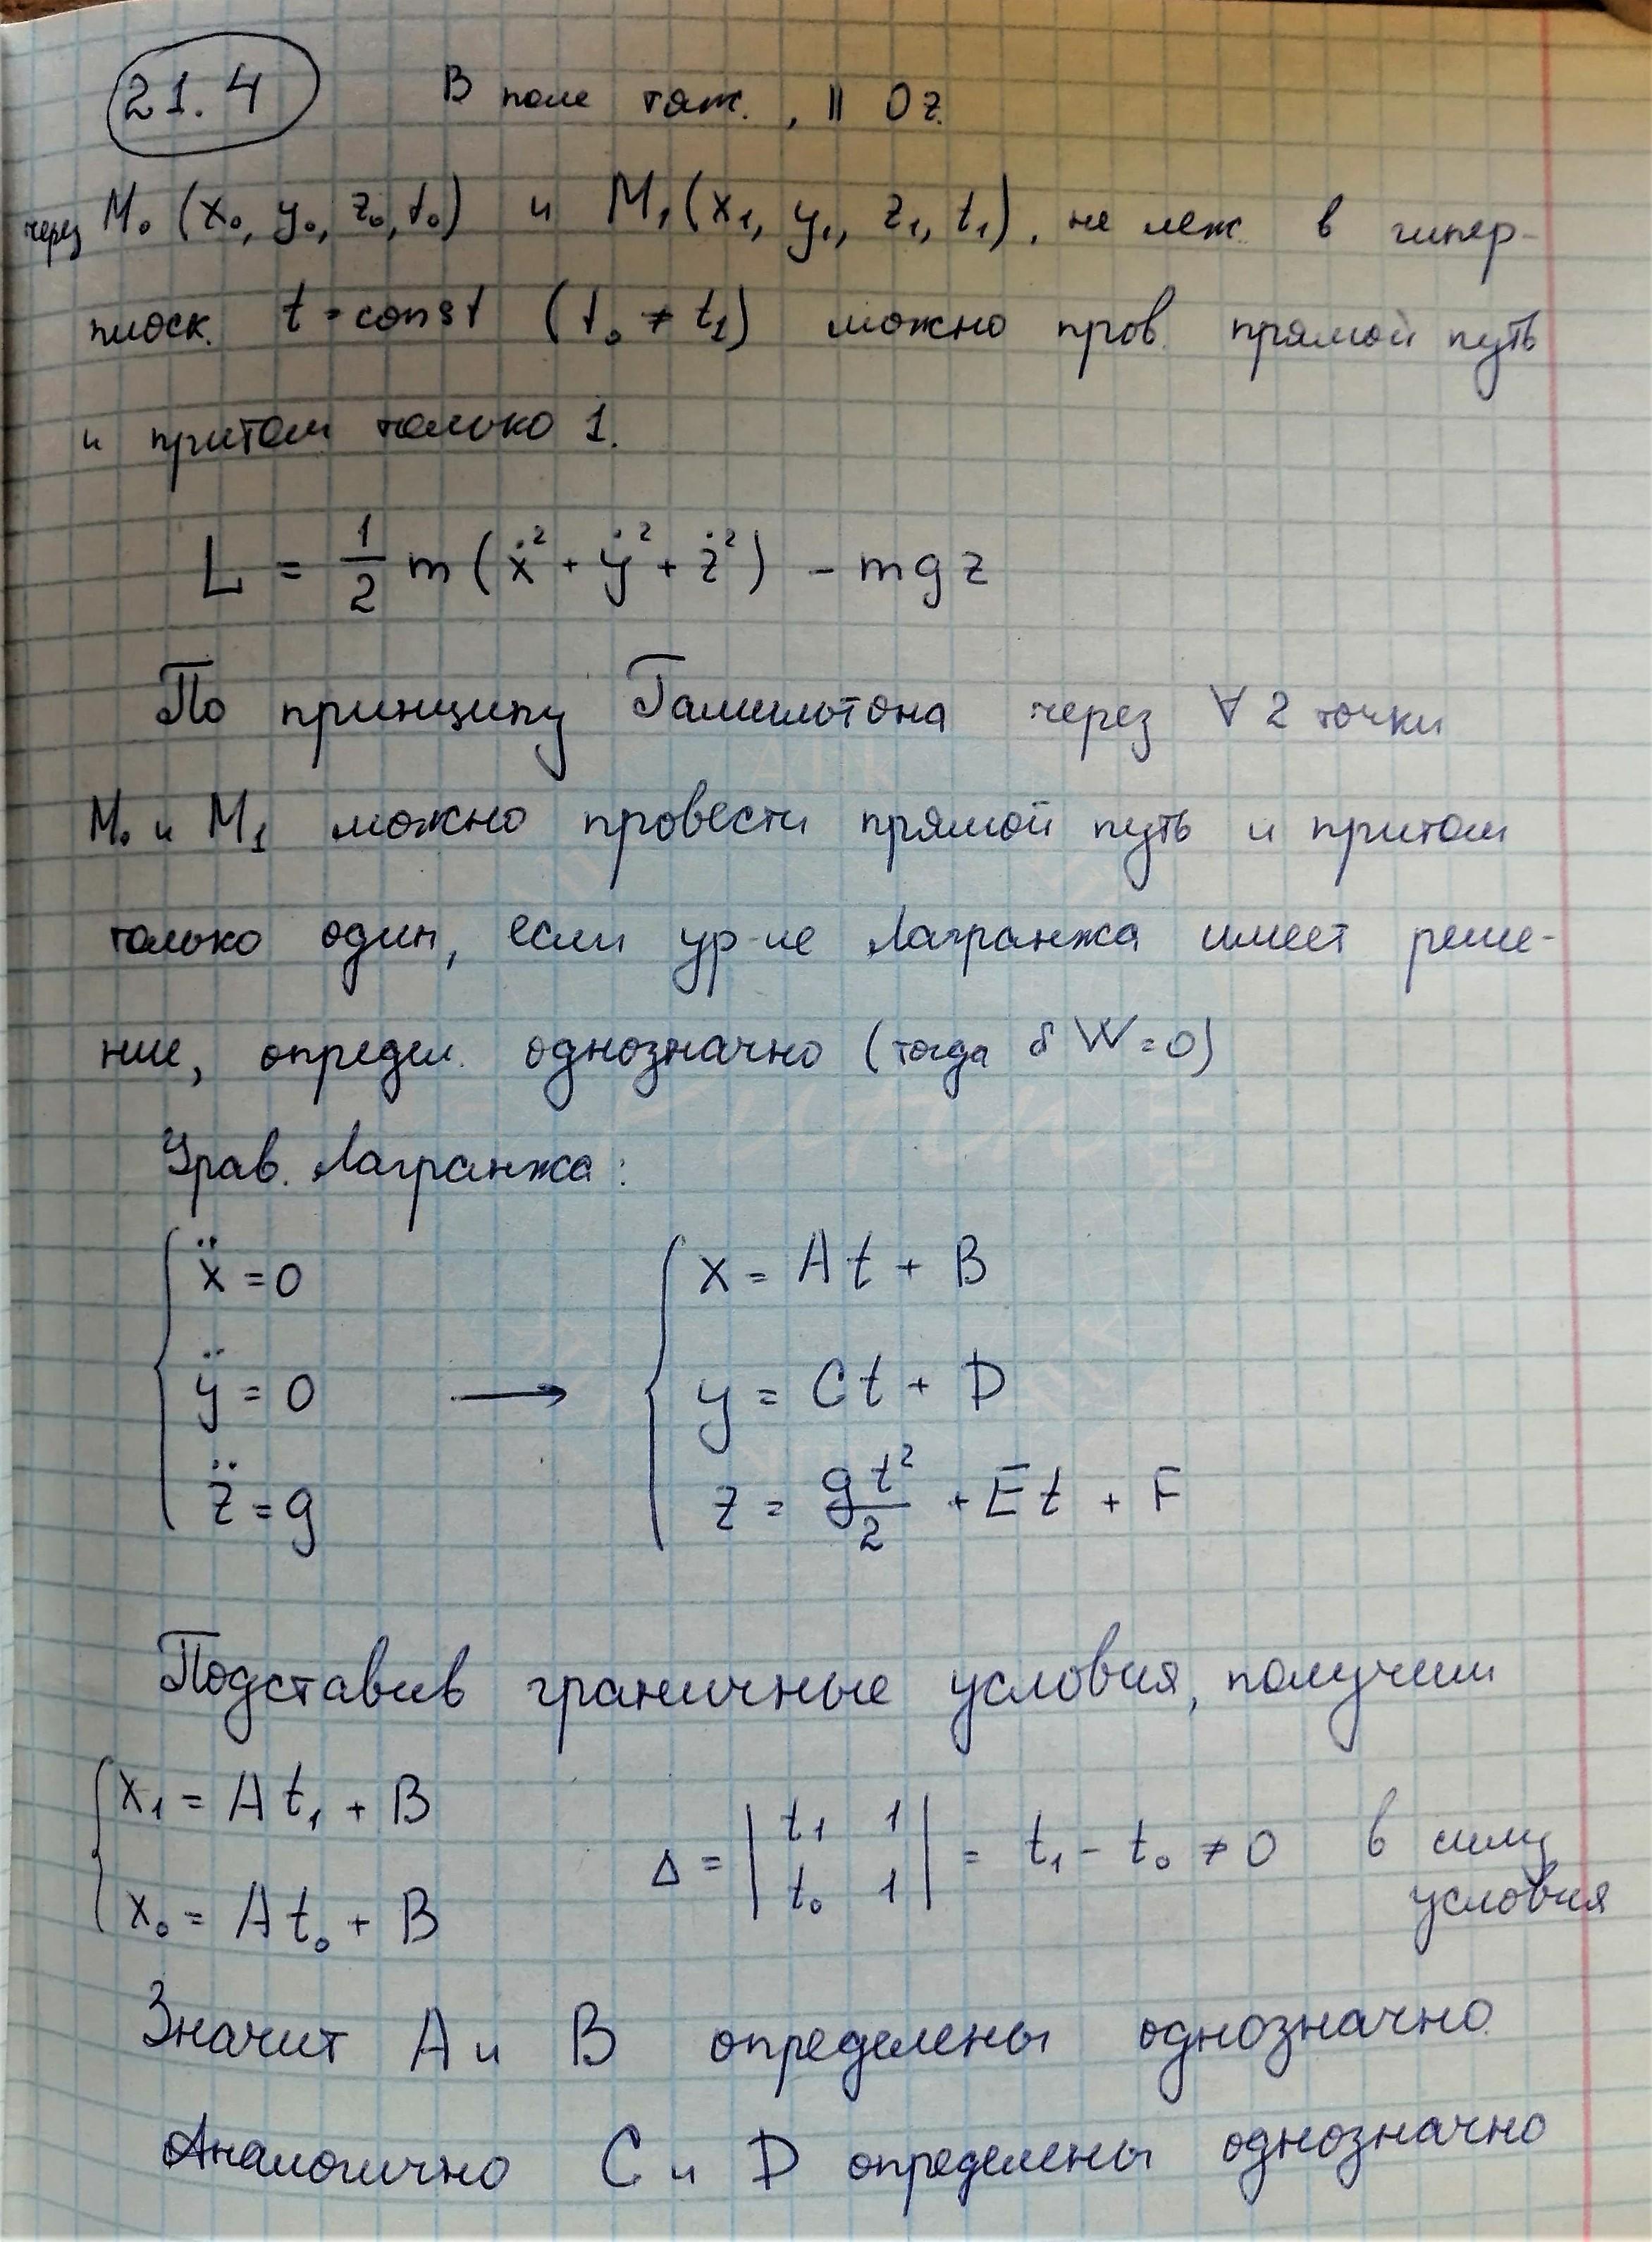 21.4 В поле тяж., || Oz.
через M₀ (x₀, y₀, z₀, t₀) и M₁ (x₁, y₁, z₁, t₁), не леж. в гипер-
плоск. t = const (t₀ ≠ t₁) можно пров. прямой путь
и притом только 1.
L = 1/2 m (ẋ² + ẏ² + ż²) - mgz
По принципу Гамильтона через ∀ 2 точки
M₀ и M₁ можно провести прямой путь и притом
только один, если ур-ие Лагранжа имеет реше-
ние, определ. однозначно (тогда δW = 0)
Урав. Лагранжа:
{ ẍ = 0 { x = At + B
ÿ = 0 → y = Ct + D
z̈ = g z = gt²/2 + Et + F
Подставив граничные условия, получим
{ x₁ = At₁ + B
x₀ = At₀ + B
Δ = | t₁ 1 |
| t₀ 1 | = t₁ - t₀ ≠ 0 в силу
условия
Значит A и B определены однозначно.
Аналогично C и D определены однозначно